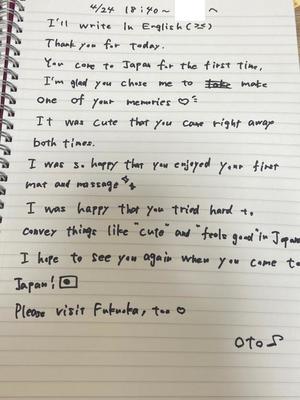 4/24 18:40~ へ
I'll write in English (≧≦)
Thank you for today.
You come to Japan for the first time,
I'm glad you chose me to make
one of your memories ♡
It was cute that you came right away
both times.
I was so happy that you enjoyed your first
mat and massage
I was happy that you tried hard to
convey things like "cute" and "feels good" in Japan
I hope to see you again when you come to
Japan!
Please visit Fukuoka, too ♡